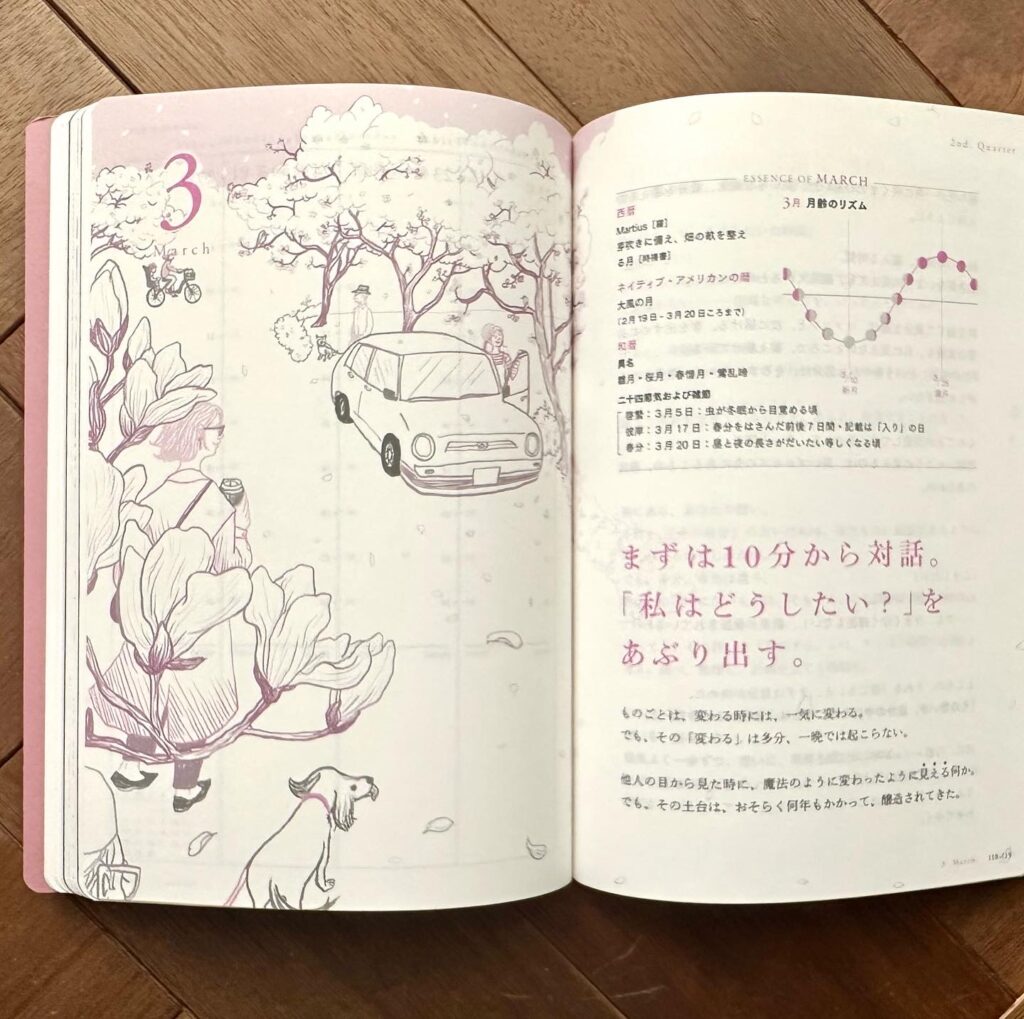 3
March
2nd. Quarter
ESSENCE OF MARCH
3月 月齢のリズム
西暦
Martius［羅］
芽吹きに備え、畑の畝を整え
る月［時禱書］
ネイティブ・アメリカンの暦
大風の月
(2月19日-3月20日ころまで)
和暦
異名
二十四節気および雑節
啓蟄：3月5日：虫が冬眠から目覚める頃
彼岸：3月17日：春分をはさんだ前後7日間・記載は「入り」の日
春分：3月20日：昼と夜の長さがだいたい等しくなる頃
3/10
新月
3/25
満月
まずは10分から対話。
「私はどうしたい？」を
あぶり出す。
ものごとは、変わる時には、一気に変わる。
でも、その「変わる」は多分、一晩では起こらない。
他人の目から見た時に、魔法のように変わったように見える何か。
でも、その土台は、おそらく何年もかかって、醸造されてきた。
3 March